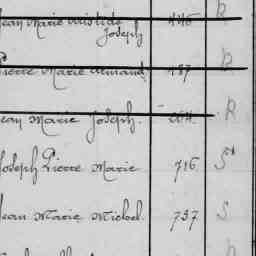 Jean Marie Aristide 446 R
Joseph
Pierre Marie Armand. 487 R
Jean Marie Joseph. 664 R
Joseph Pierre Marie 716 St
Jean Marie Michel. 737 S